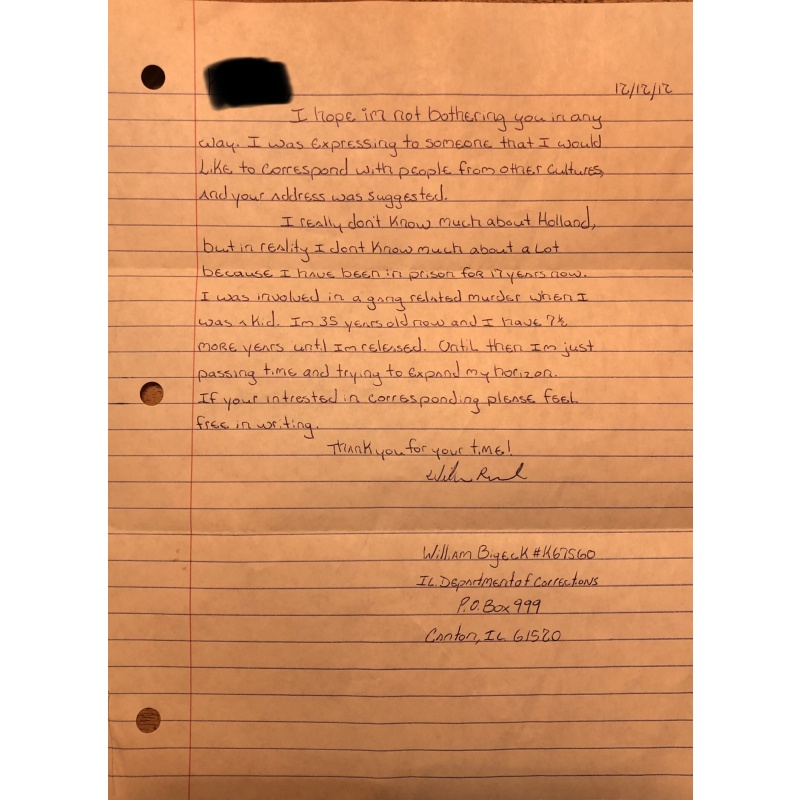 12/12/12
I hope im not bothering you in any
way. I was expressing to someone that I would
Like to correspond with people from other cultures,
and your address was suggested.
I really don't know much about Holland,
but in reality I dont know much about a lot
because I have been in prison for 17 years now.
I was involved in a gang related murder when I
was a kid. Im 35 years old now and I have 7½
more years until Im released. Until then Im just
passing time and trying to expand my horizon.
If your intrested in corresponding please feel
free in writing.
Thank you for your time!
William Bigeck #K67560
IL. Department of Corrections
P.O. Box 999
Canton, IL 61520